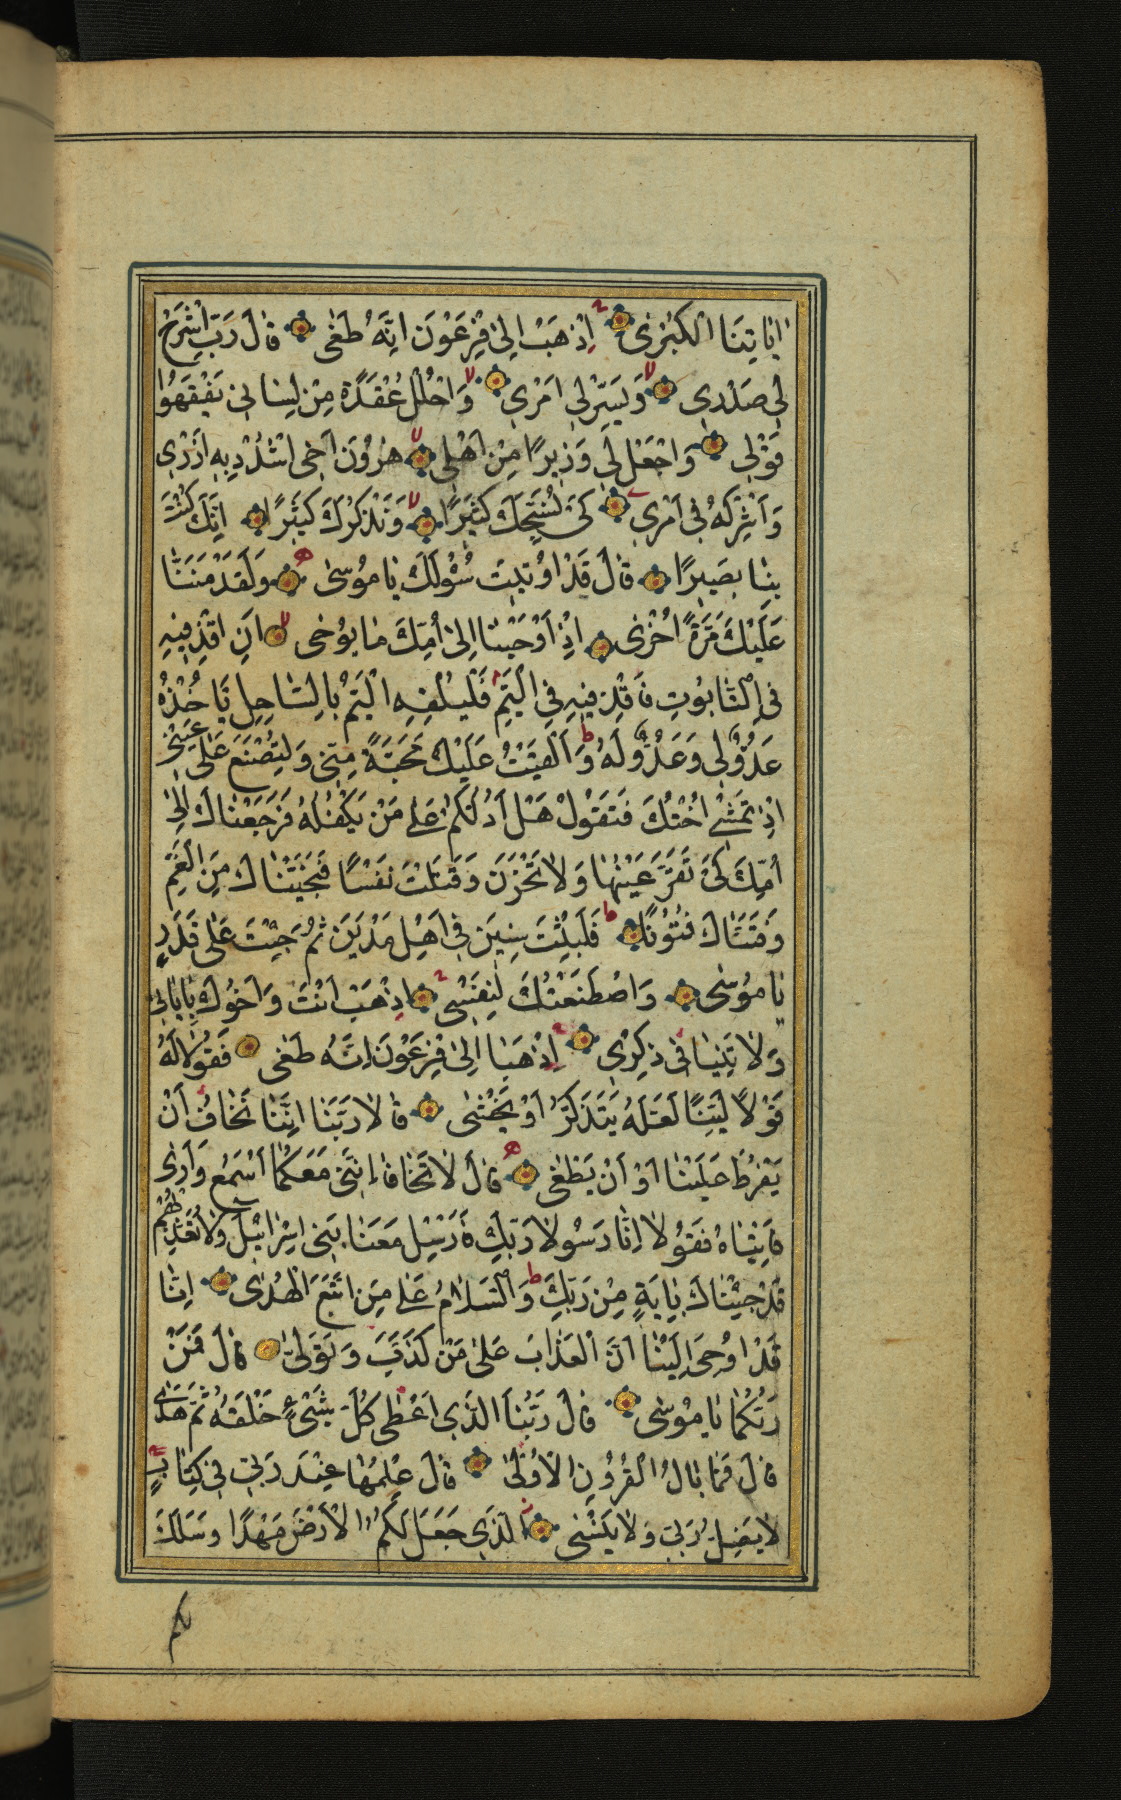 اٰيَاتِنَا الْكُبْرٰى اِذْهَبْ اِلٰى فِرْعَوْنَ اِنَّهُ طَغٰى قٰالَ رَبِّ اشْرَحْ
لِي صَدْرِي وَيَسِّرْلِي اَمْرِي وَاحْلُلْ عُقْدَةً مِنْ لِسٰانِي يَفْقَهُوا
قَوْلِي وَاجْعَلْ لِي وَزِيرًا مِنْ اَهْلِي هٰرُونَ اَخِي اشْدُدْ بِهِ اَزْرِي
وَاَشْرِكْهُ فِي اَمْرِي كَيْ نُسَبِّحَكَ كَثِيرًا وَنَذْكُرَكَ كَثِيرًا اِنَّكَ كُنْتَ
بِنٰا بَصِيرًا قٰالَ قَدْ اُوتِيتَ سُؤْلَكَ يٰا مُوسٰى وَلَقَدْ مَنَنَّا
عَلَيْكَ مَرَّةً اُخْرٰى اِذْ اَوْحَيْنٰا اِلٰى اُمِّكَ مٰا يُوحٰى اَنِ اقْذِفِيهِ
فِي التَّابُوتِ فَاقْذِفِيهِ فِي الْيَمِّ فَلْيُلْقِهِ الْيَمُّ بِالسّٰاحِلِ يَاْخُذْهُ
عَدُوٌّ لِي وَعَدُوٌّ لَهُ وَاَلْقَيْتُ عَلَيْكَ مَحَبَّةً مِنِّي وَلِتُصْنَعَ عَلٰى عَيْنِي
اِذْ تَمْشِي اُخْتُكَ فَتَقُولُ هَلْ اَدُلُّكُمْ عَلٰى مَنْ يَكْفُلُهُ فَرَجَعْنٰاكَ اِلٰى
اُمِّكَ كَيْ تَقَرَّ عَيْنُهٰا وَلٰا تَحْزَنَ وَقَتَلْتَ نَفْسًا فَنَجَّيْنٰاكَ مِنَ الْغَمِّ
وَفَتَنّٰاكَ فُتُونًا فَلَبِثْتَ سِنِينَ فِي اَهْلِ مَدْيَنَ ثُمَّ جِئْتَ عَلٰى قَدَرٍ
يٰا مُوسٰى وَاصْطَنَعْتُكَ لِنَفْسِي اِذْهَبْ اَنْتَ وَاَخُوكَ بِاٰيٰاتِي
وَلٰا تَنِيٰا فِي ذِكْرِي اِذْهَبٰا اِلٰى فِرْعَوْنَ اِنَّهُ طَغٰى فَقُولٰا لَهُ
قَوْلًا لَيِّنًا لَعَلَّهُ يَتَذَكَّرُ اَوْ يَخْشٰى قٰالٰا رَبَّنَا اِنَّنٰا نَخٰافُ اَنْ
يَفْرُطَ عَلَيْنٰا اَوْ اَنْ يَطْغٰى قٰالَ لٰا تَخٰافٰا اِنَّنِي مَعَكُمٰا اَسْمَعُ وَاَرٰى
فَاْتِيٰاهُ فَقُولٰا اِنّٰا رَسُولٰا رَبِّكَ فَاَرْسِلْ مَعَنٰا بَنِي اِسْرٰائِيلَ وَلٰا تُعَذِّبْهُمْ
قَدْ جِئْنٰاكَ بِاٰيَةٍ مِنْ رَبِّكَ وَالسَّلٰامُ عَلٰى مَنِ اتَّبَعَ الْهُدٰى اِنّٰا
قَدْ اُوحِيَ اِلَيْنٰا اَنَّ الْعَذٰابَ عَلٰى مَنْ كَذَّبَ وَتَوَلّٰى قٰالَ فَمَنْ
رَبُّكُمٰا يٰا مُوسٰى قٰالَ رَبُّنَا الَّذِي اَعْطٰى كُلَّ شَيْءٍ خَلْقَهُ ثُمَّ هَدٰى
قٰالَ فَمٰا بٰالُ الْقُرُونِ الْاُولٰى قٰالَ عِلْمُهٰا عِنْدَ رَبِّي فِي كِتٰابٍ
لٰا يَضِلُّ رَبِّي وَلٰا يَنْسٰى الَّذِي جَعَلَ لَكُمُ الْاَرْضَ مَهْدًا وَسَلَكَ
لكم